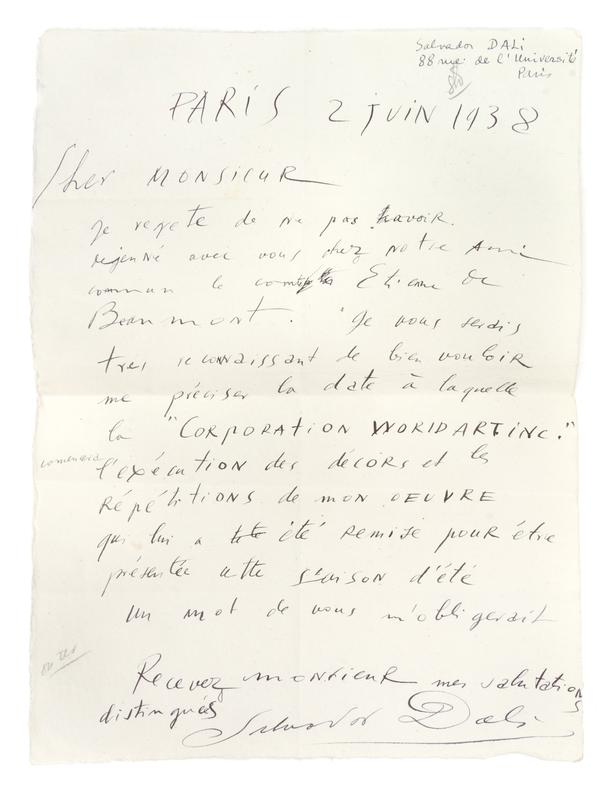 Salvador DALi
88 rue de l'Université
Paris
PARiS 2 JUIN 1938
Cher MONSIEUR
Je regrete de ne pas
avec vous chez notre Ami
commun le comte Etienne de
Beaumont. Je vous serais
tres reconnaissant de bien vouloir
me préciser la date à laquelle
la "CORPORATION WORLD ART INC."
comencera
l'exécution des décors et les
RÉPÉTITIONS de MON OEUVRE
qui lui a été REMISE POUR être
présentée cette saison d'été
Un mot de vous m'obligerait
Recevez MONSIEUR mes salutations
distingués
Salvador Dali